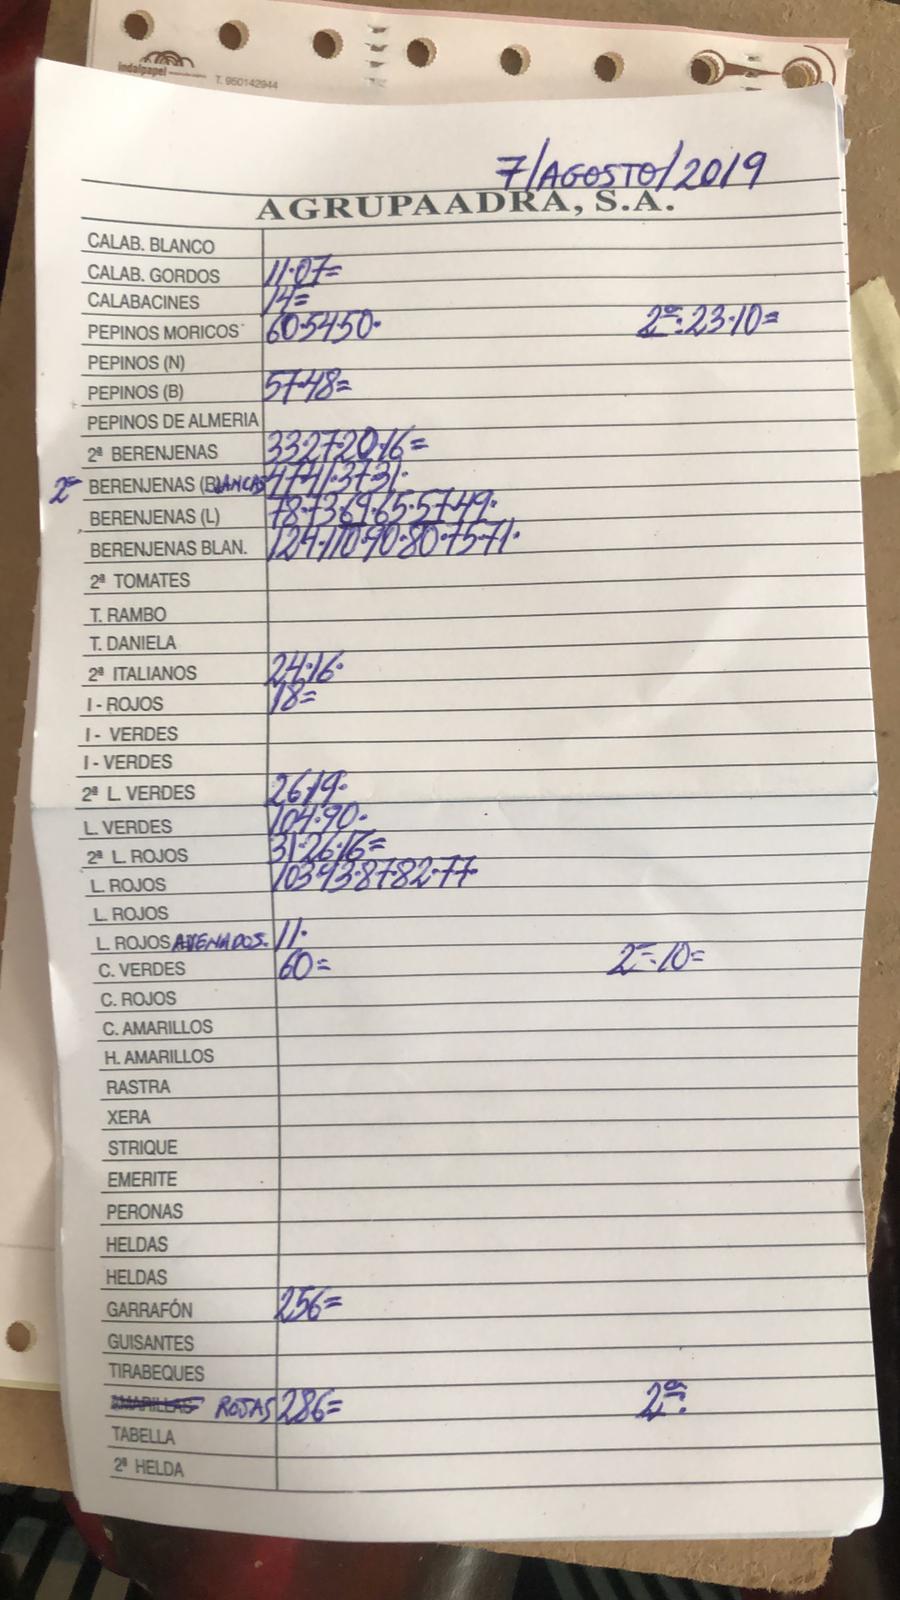 indalpapel T. 950142944
7/AGOSTO/2019
AGRUPAADRA, S.A.
CALAB. BLANCO
CALAB. GORDOS 11·07=
CALABACINES 14=
PEPINOS MORICOS 60·54·50· 2ª: 23·10=
PEPINOS (N)
PEPINOS (B) 57·48=
PEPINOS DE ALMERIA
2ª BERENJENAS 33·27·20·16=
2ª BERENJENAS (BLANCAS 47·41·37·31·
BERENJENAS (L) 78·73·69·65·57·49·
BERENJENAS BLAN. 124·110·90·80·75·71·
2ª TOMATES
T. RAMBO
T. DANIELA
2ª ITALIANOS 24·16·
I - ROJOS 18=
I - VERDES
I - VERDES
2ª L. VERDES 26·19·
L. VERDES 104·90·
2ª L. ROJOS 31·26·16=
L. ROJOS 103·93·87·82·77·
L. ROJOS
L. ROJOS 11·
C. VERDES 60= 2ª·10=
C. ROJOS
C. AMARILLOS
H. AMARILLOS
RASTRA
XERA
STRIQUE
EMERITE
PERONAS
HELDAS
HELDAS
GARRAFÓN 256=
GUISANTES
TIRABEQUES
AMARILLAS ROJAS 286= 2ª:
TABELLA
2ª HELDA